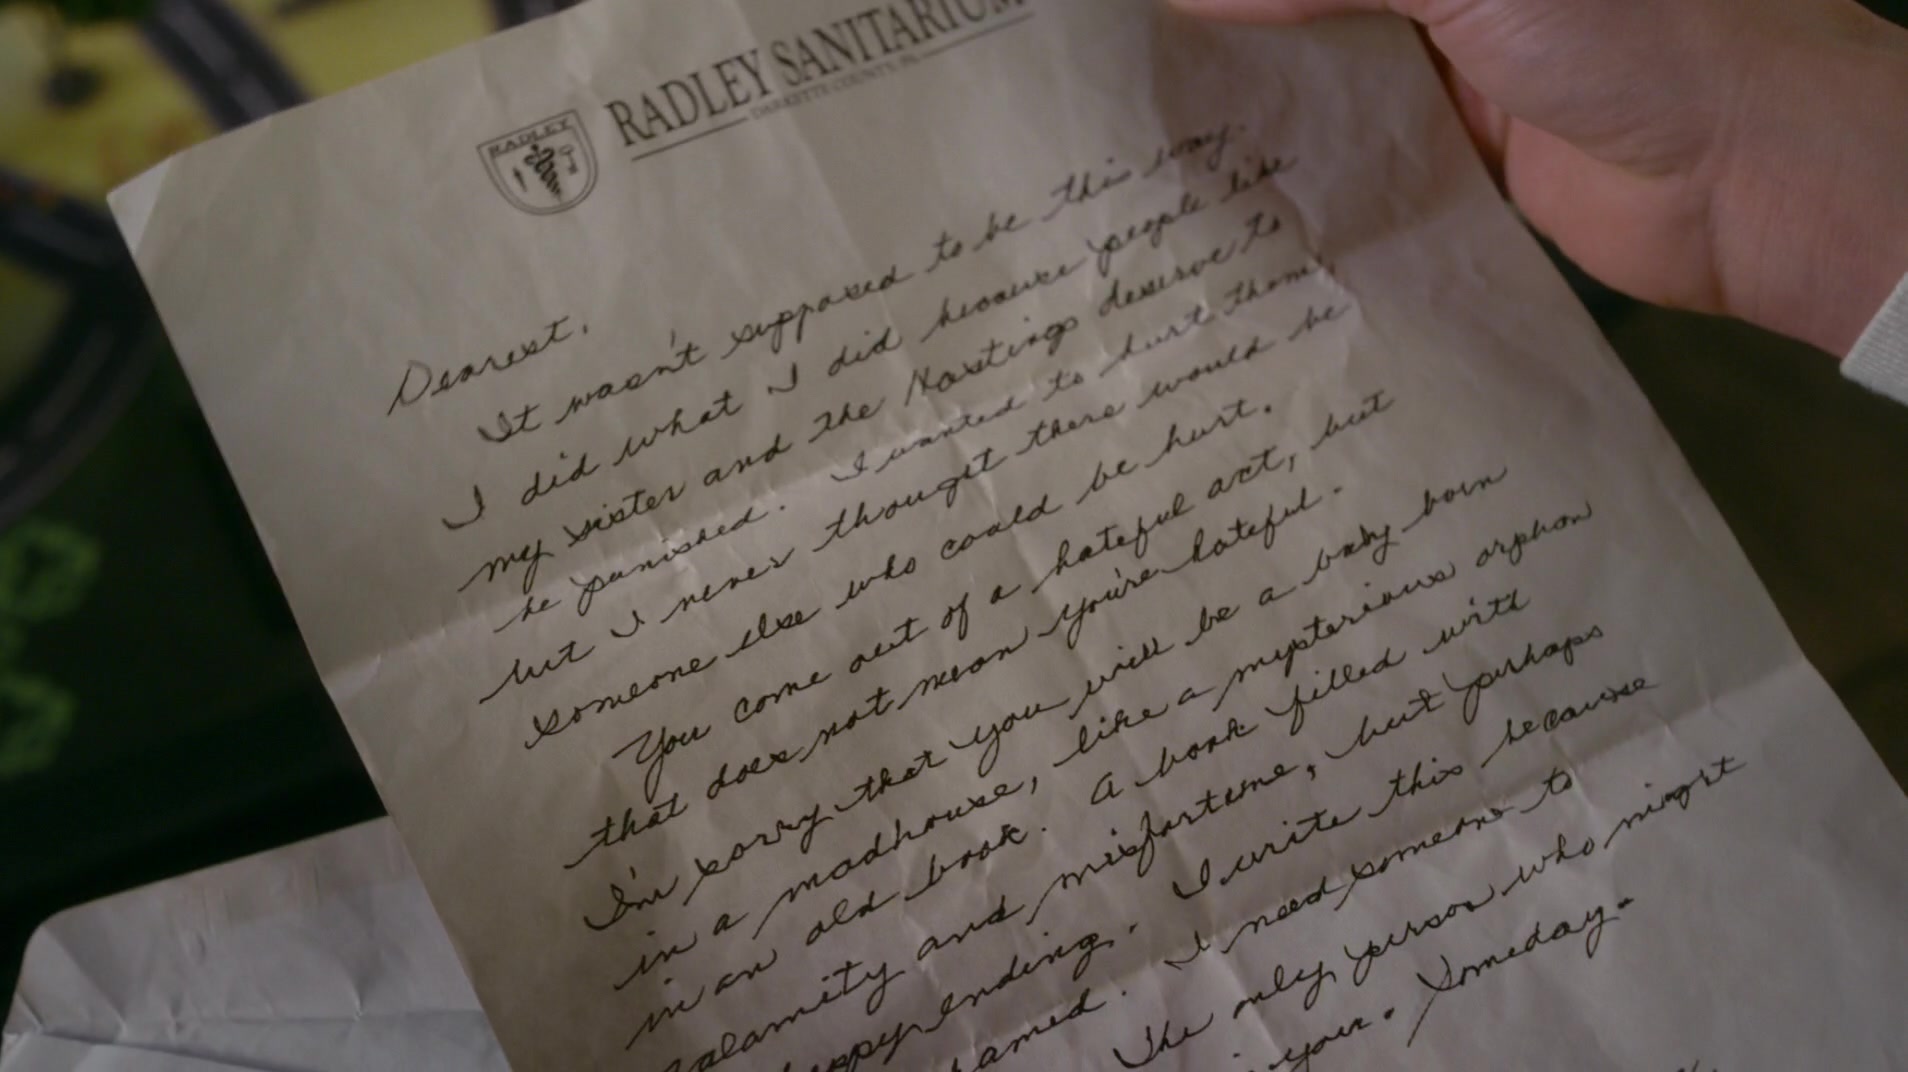 RADLEY SANITARIUM
RADLEY
Dearest,
It wasn't supposed to be this way.
I did what I did because people like
my sister and the Hastings deserve to
be punished. I wanted to hurt them,
but I never thought there would be
someone else who could be hurt.
You come out of a hateful act, but
that does not mean you're hateful.
I'm sorry that you will be a baby born
in a madhouse, like a mysterious orphan
in an old book. A book filled with
calamity and misfortune, but perhaps
happy ending. I write this because
I need someone to
The only person who might
you. Someday.